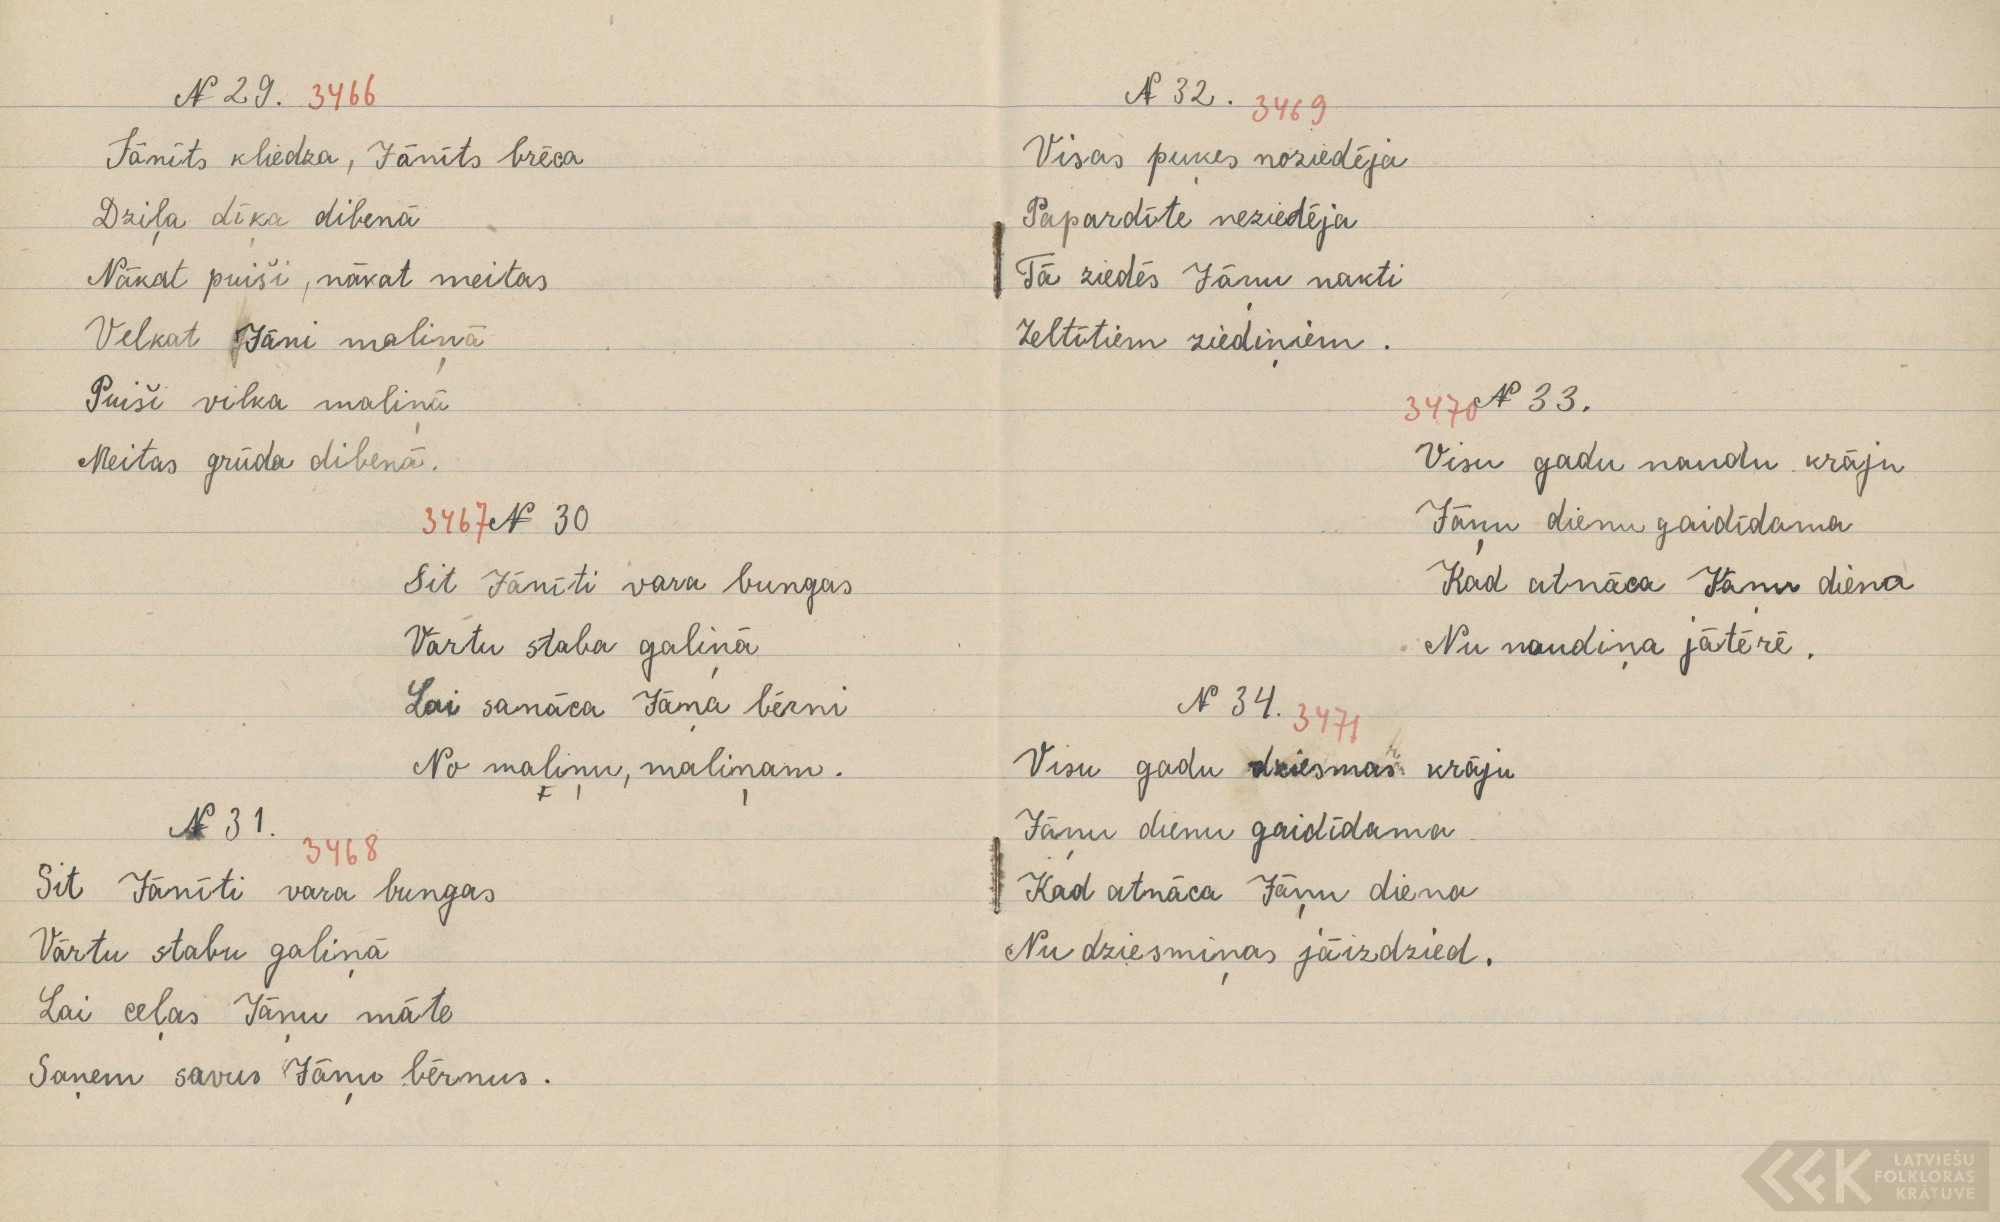 N 29. 3466
Jānīts kliedza, Jānīts brēca
Dziļa dīķa dibenā
Nākat puiši, nākat meitas
Velkat Jāni maliņā
Puiši vilka maliņā
Meitas grūda dibenā.
3467 N 30
Sit Jānīti vara bungas
Vārtu staba galiņā
Lai sanāca Jāņa bērni
No maļiņu, maliņam.
N 31.
3468
Sit Jānīti vara bungas
Vārtu stabu galiņā
Lai ceļas Jāņu māte
Saņem savus Jāņu bērnus.
N 32. 3469
Visas puķes noziedēja
Papardīte neziedēja
Tā ziedēs Jāņu nakti
Zeltītiem ziediņiem.
3470 N 33.
Visu gadu naudu krāju
Jāņu dienu gaidīdama
Kad atnāca Jāņu diena
Nu naudiņa jātērē.
N 34. 3471
Visu gadu dziesmas krāju
Jāņu dienu gaidīdama
Kad atnāca Jāņu diena
Nu dziesmiņas jāizdzied.
LATVIEŠU
FOLKLORAS
KRĀTUVE